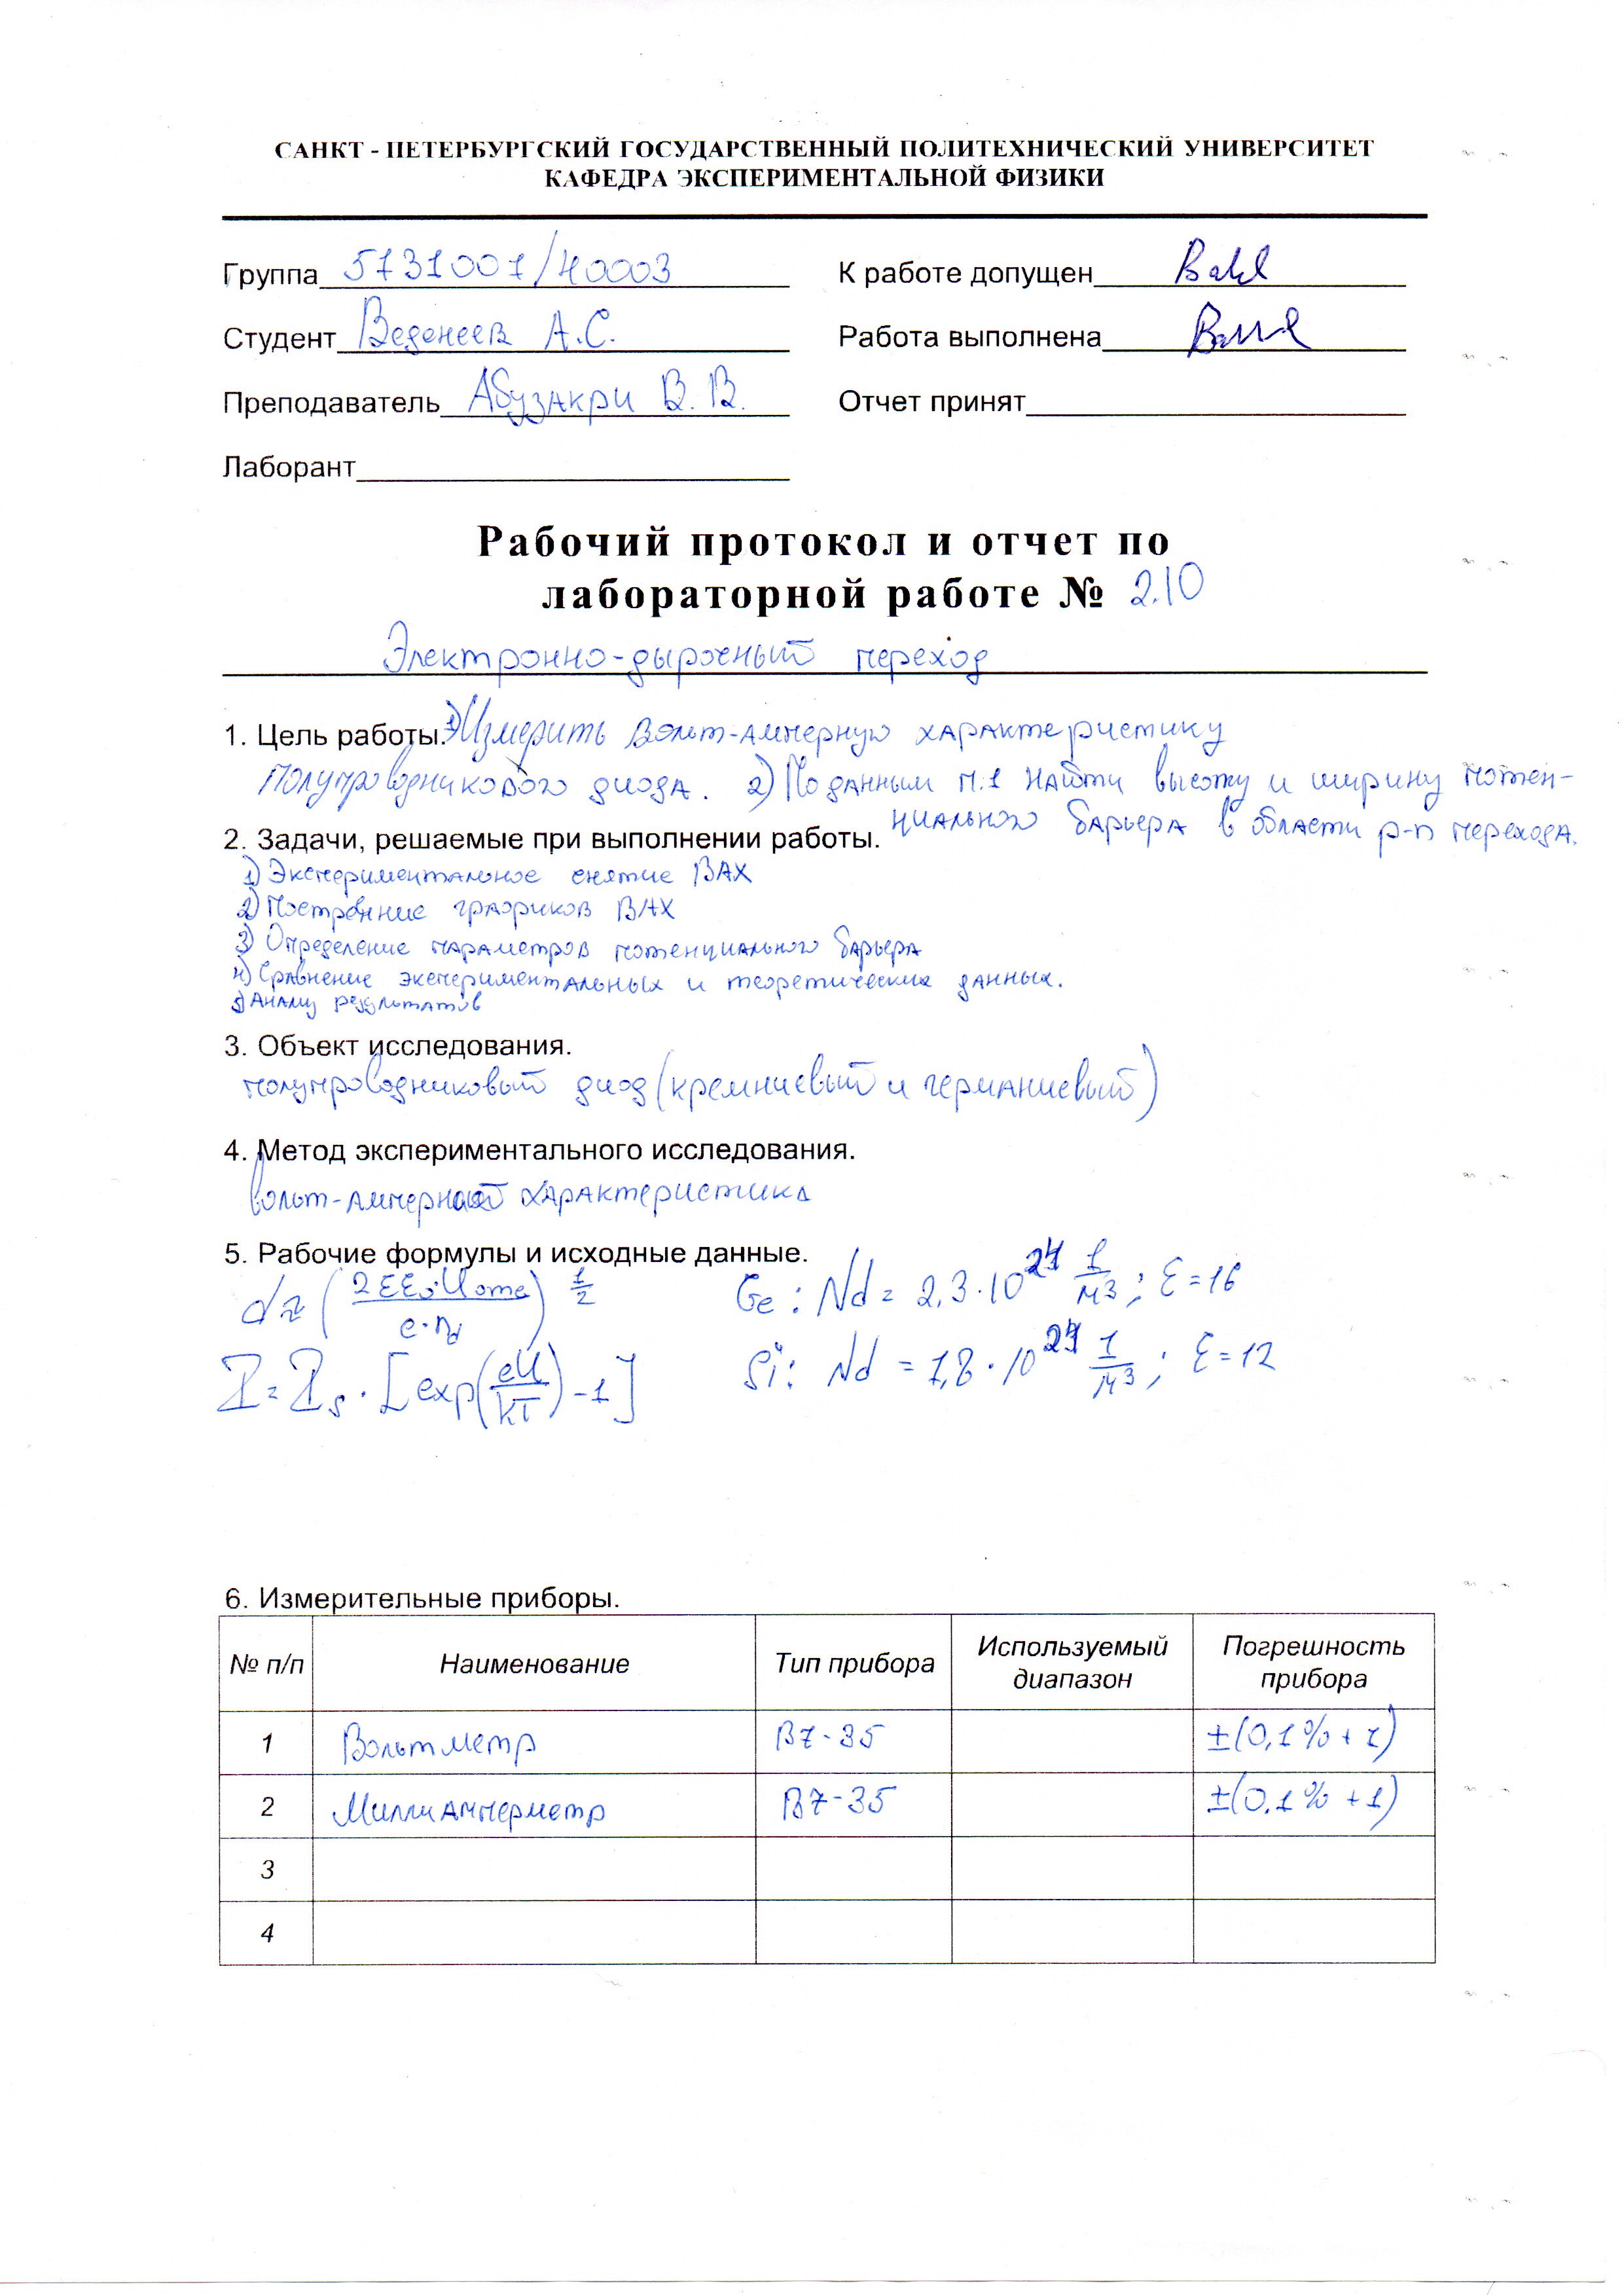 САНКТ - ПЕТЕРБУРГСКИЙ ГОСУДАРСТВЕННЫЙ ПОЛИТЕХНИЧЕСКИЙ УНИВЕРСИТЕТ
КАФЕДРА ЭКСПЕРИМЕНТАЛЬНОЙ ФИЗИКИ
Группа 5131001/40003
К работе допущен
Студент Веденеев А.С.
Работа выполнена
Преподаватель Абузакри В.В.
Отчет принят
Лаборант
Рабочий протокол и отчет по
лабораторной работе № 2.10
Электронно-дырочный переход
1. Цель работы. 1) Измерить вольт-амперную характеристику
полупроводникового диода. 2) По данным п.1 найти высоту и ширину потен-
циального барьера в области p-n перехода.
2. Задачи, решаемые при выполнении работы.
1) Экспериментальное снятие ВАХ
2) Построение графиков ВАХ
3) Определение параметров потенциального барьера
4) Сравнение экспериментальных и теоретических данных.
5) Анализ результатов
3. Объект исследования.
полупроводниковый диод (кремниевый и германиевый)
4. Метод экспериментального исследования.
вольт-амперной характеристика
5. Рабочие формулы и исходные данные.
d = (2εε₀·Uотс / e·nd)^1/2
Ge: Nd = 2,3·10^21 1/м³; ε=16
I = Is · [exp(eU/kT) - 1]
Si: Nd = 1,8·10^21 1/м³; ε=12
6. Измерительные приборы.
№ п/п Наименование Тип прибора Используемый диапазон Погрешность прибора
1 Вольтметр В7-35 ±(0,1% + 1)
2 Миллиамперметр В7-35 ±(0,1% + 1)
3
4